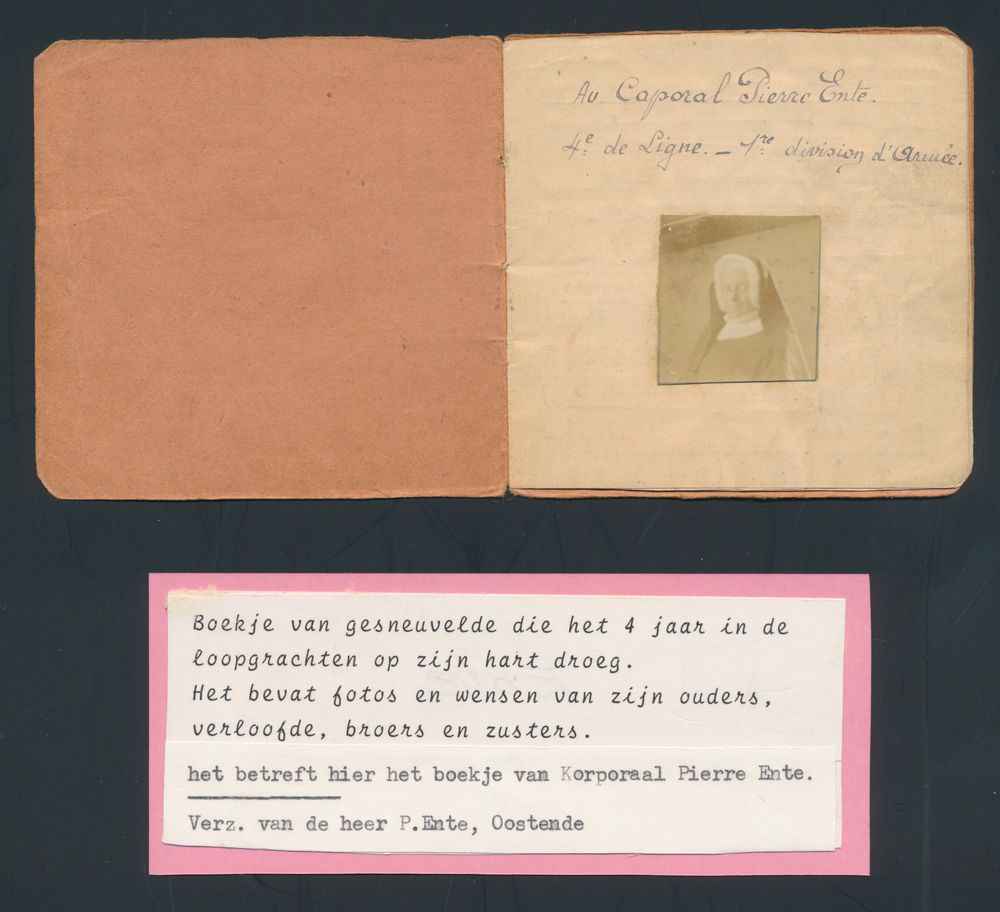 Au Caporal Pierre Ente.
4e de Ligne. – 1re division d'Armée.
Boekje van gesneuvelde die het 4 jaar in de
loopgrachten op zijn hart droeg.
Het bevat fotos en wensen van zijn ouders,
verloofde, broers en zusters.
het betreft hier het boekje van Korporaal Pierre Ente.
Verz. van de heer P.Ente, Oostende